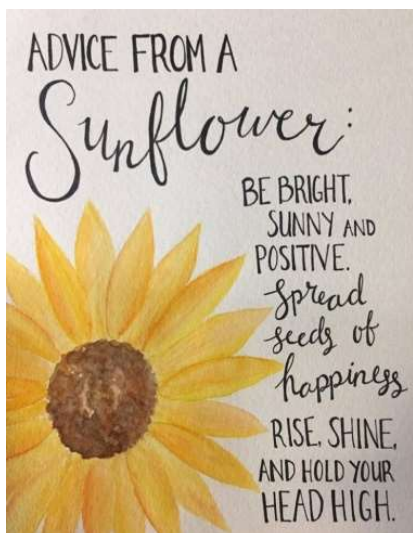 ADVICE FROM A
Sunflower:
BE BRIGHT,
SUNNY AND
POSITIVE.
Spread
seeds of
happiness
RISE, SHINE,
AND HOLD YOUR
HEAD HIGH.